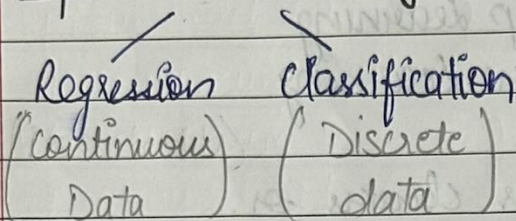 Regression Classification
(Continuous) (Discrete)
Data data